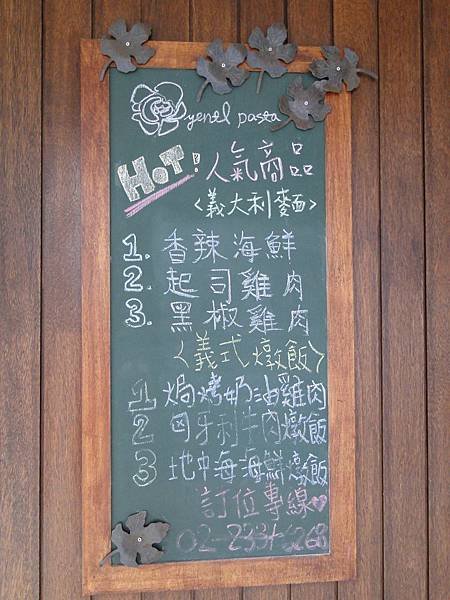 yenel pasta
HOT! 人氣商品
<義大利麵>
1. 香辣海鮮
2. 起司雞肉
3. 黑椒雞肉
<義式燉飯>
1 焗烤奶油雞肉
2 匈牙利牛肉燉飯
3 地中海海鮮燉飯
訂位專線